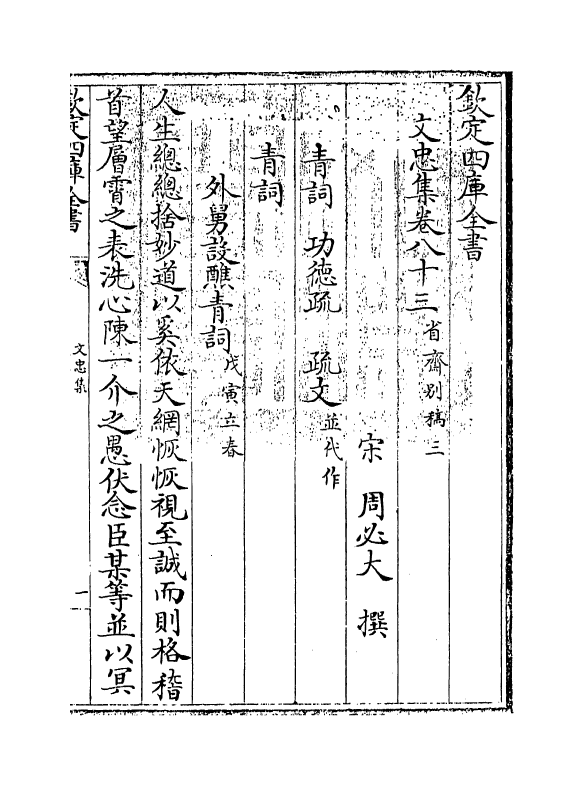 欽定四庫全書
文忠集卷八十三 省齋别稿三
宋 周必大 撰
青詞 功德疏 疏文 並代作
青詞
外舅設醮青詞 戊寅立春
人生總總捨妙道以奚依天網恢恢視至誠而則格稽
首望層霄之表洗心陳一介之愚伏念臣某等並以冥
欽定四庫全書
文忠集
一